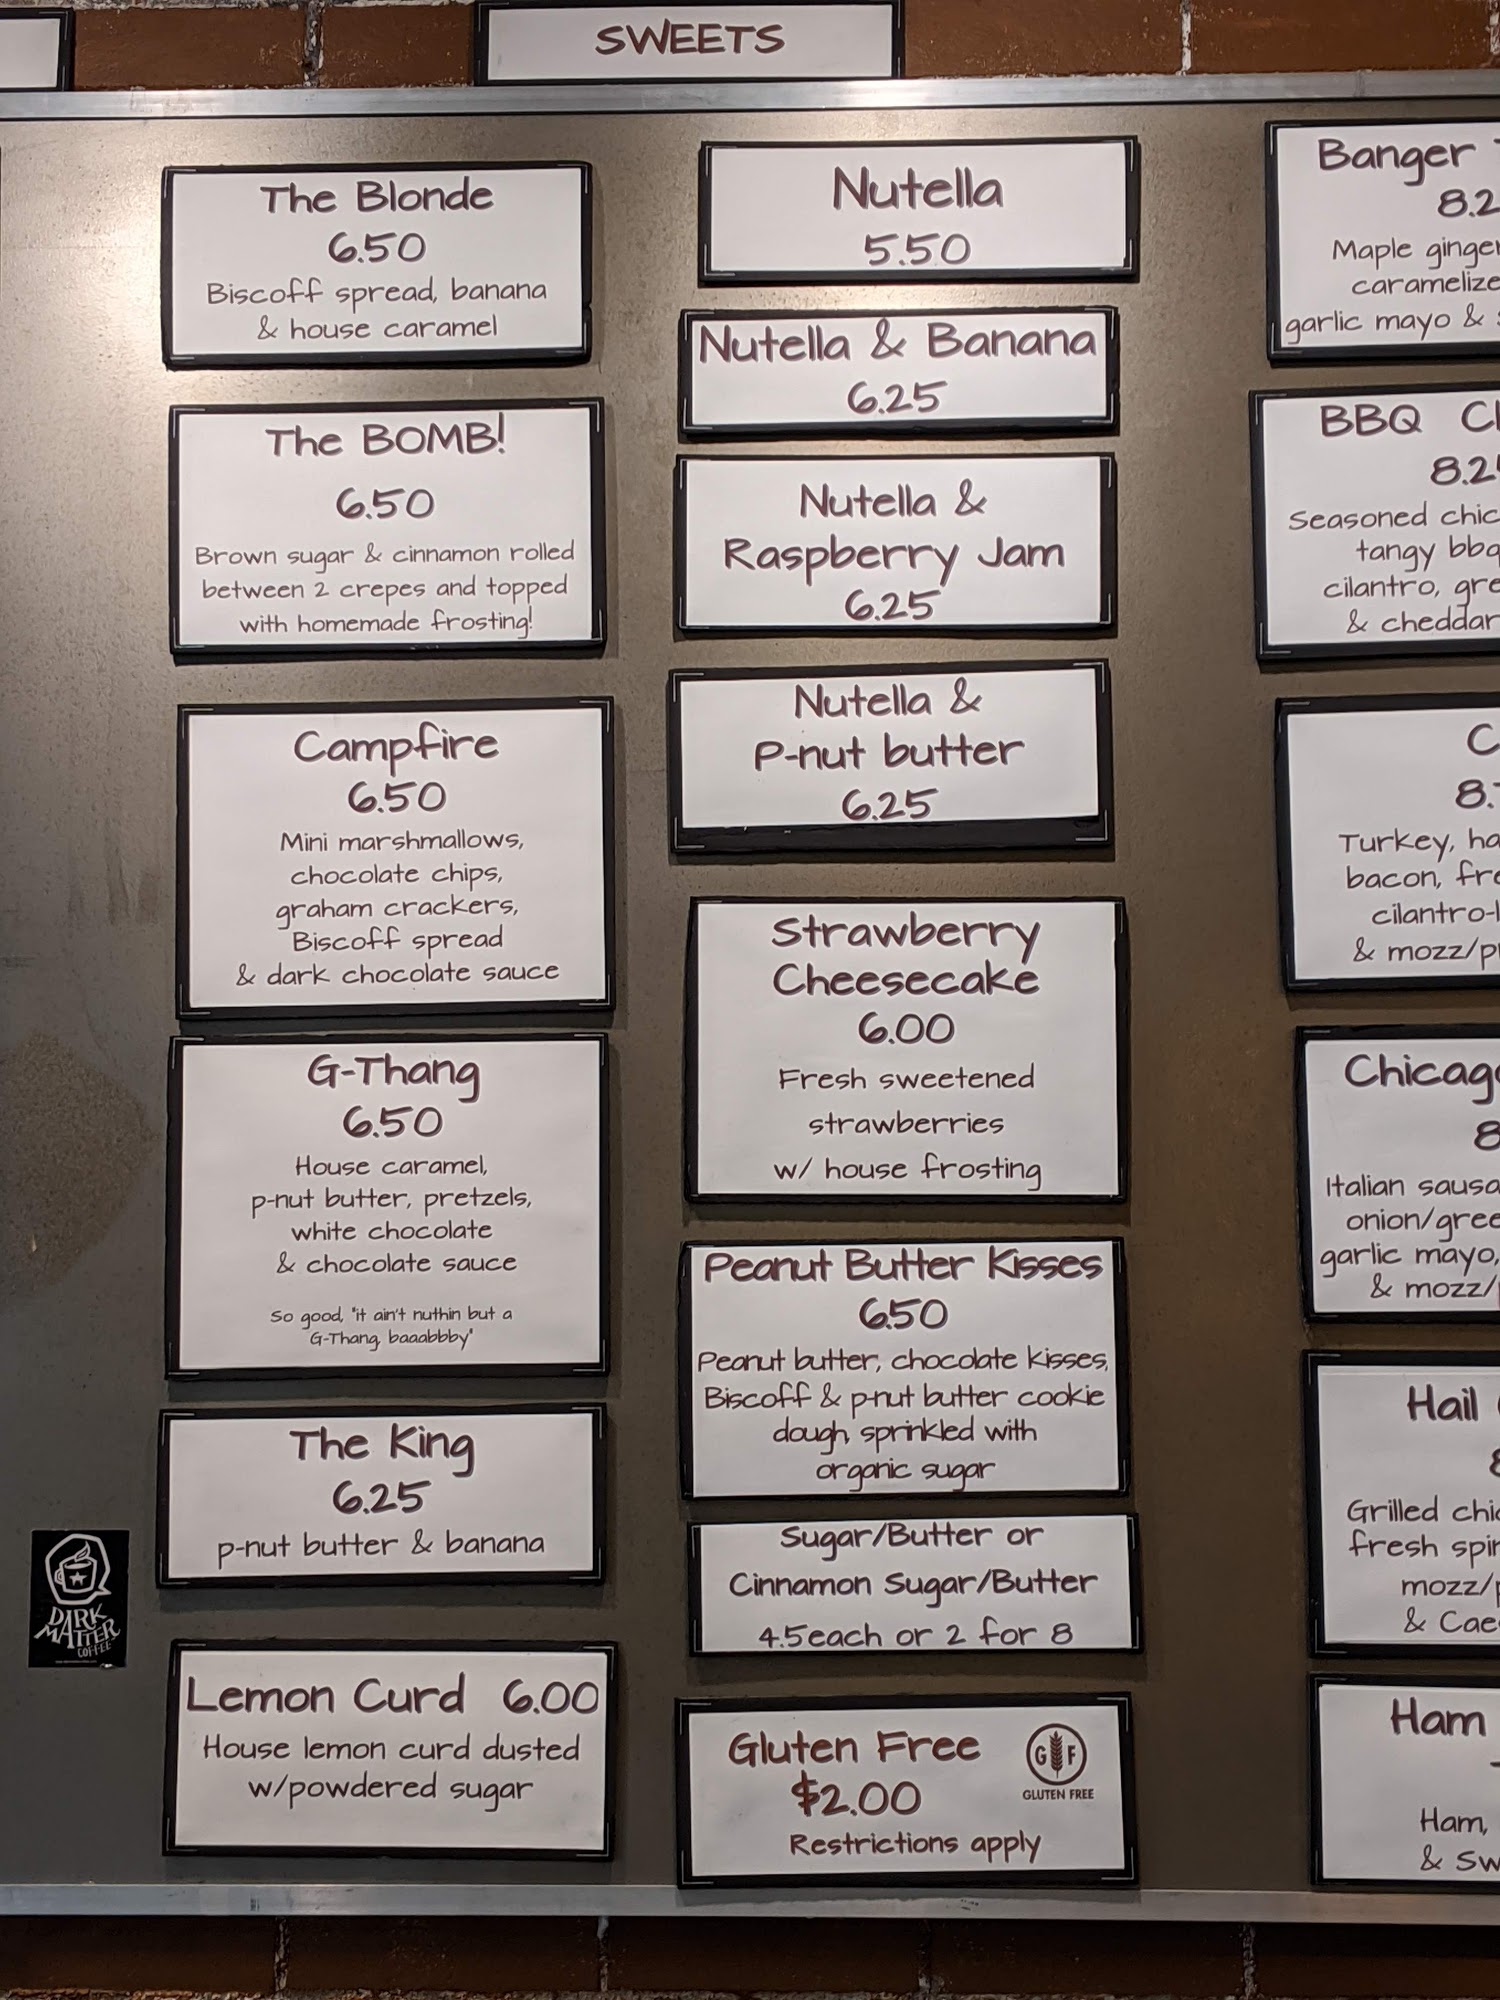 SWEETS
The Blonde
6.50
Biscoff spread, banana
& house caramel
The BOMB!
6.50
Brown sugar & cinnamon rolled
between 2 crepes and topped
with homemade frosting!
Campfire
6.50
Mini marshmallows,
chocolate chips,
graham crackers,
Biscoff spread
& dark chocolate sauce
G-Thang
6.50
House caramel,
p-nut butter, pretzels,
white chocolate
& chocolate sauce
So good, "it ain't nuthin but a
G-Thang, baaabbby"
The King
6.25
p-nut butter & banana
Lemon Curd 6.00
House lemon curd dusted
w/powdered sugar
DARK
MATTER
COFFEE
Nutella
5.50
Nutella & Banana
6.25
Nutella &
Raspberry Jam
6.25
Nutella &
P-nut butter
6.25
Strawberry
Cheesecake
6.00
Fresh sweetened
strawberries
w/ house frosting
Peanut Butter Kisses
6.50
Peanut butter, chocolate kisses,
Biscoff & p-nut butter cookie
dough, sprinkled with
organic sugar
Sugar/Butter or
Cinnamon Sugar/Butter
4.5each or 2 for 8
Gluten Free
$2.00
Restrictions apply
G F
GLUTEN FREE
Banger
8.2
Maple ginger
caramelize
garlic mayo &
BBQ
8.25
Seasoned chic
tangy bbq
cilantro, gre
& cheddar
C
8.
Turkey, ha
bacon, fre
cilantro-l
& mozz/p
Chicago
8
Italian sausa
onion/gree
garlic mayo,
& mozz/
Hail
8
Grilled chi
fresh spin
mozz/p
& Cae
Ham
Ham,
& Sw